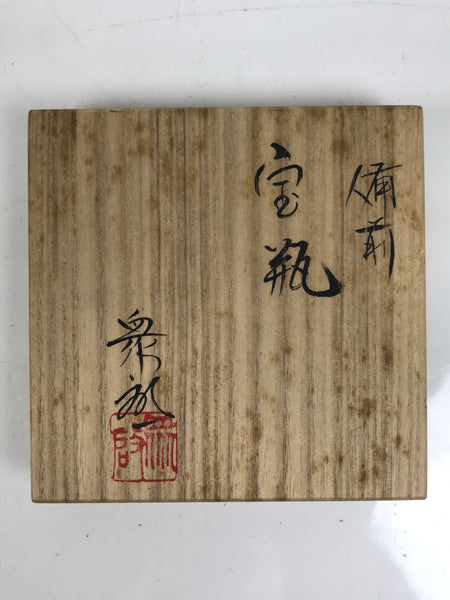 備前
宝瓶
衆